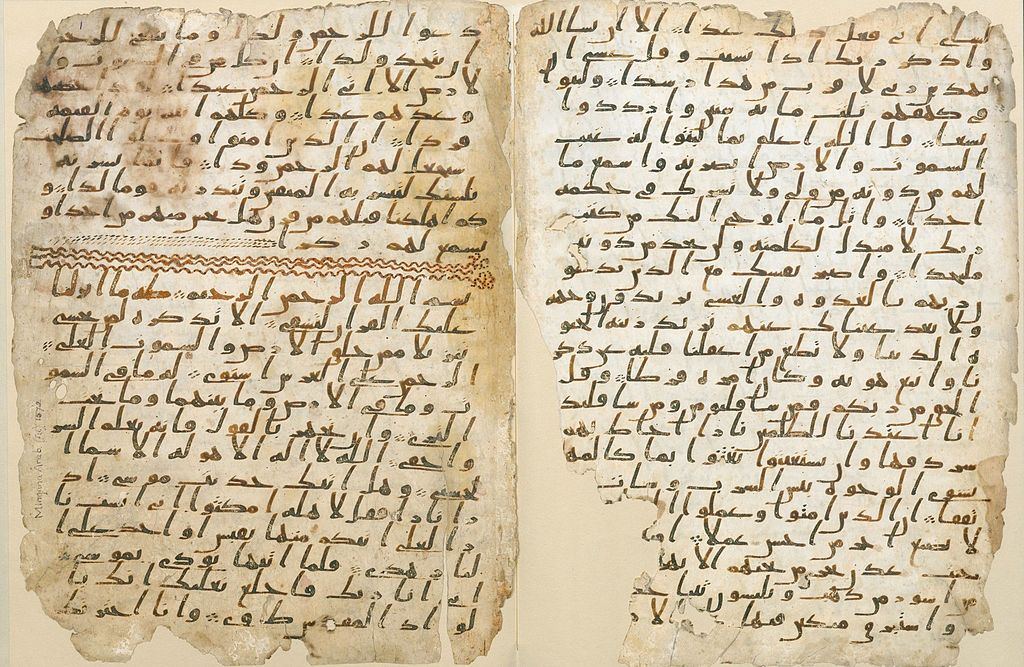 لشاى انى فعل ذلك غدا الا ان يشا الله
واذكر ربك اذا نسيت وقل عسى ان
يهدين ربى لاقرب من هذا رشدا ولبثوا
فى كهفهم ثلث مائه سنين وازددوا
تسعا قل الله اعلم بما لبثوا له غيب
السموت والارض ابصر به واسمع ما
لهم من دونه من ولى ولا يشرك فى حكمه
احدا واتل ما اوحى اليك من كتب
ربك لا مبدل لكلمته ولن تجد من دونه
ملتحدا واصبر نفسك مع الذين يدعو
ن ربهم بالغدوه والعشى يريدون وجهه
ولا تعد عيناك عنهم تريد زينه الحيو
ه الدنيا ولا تطع من اغفلنا قلبه عن ذكر
نا واتبع هويه وكان امره فرطا وقل
الحق من ربكم فمن شا فليومن ومن شا فليكـ
انا اعتدنا للظلمين نارا احاط بهم
سردقها وان يستغيثوا يغثوا بما كالمهـ
يشوى الوجوه بئس الشرب وسات
تفقا ان الذين امنوا وعملوا ا
لا نضيع اجر من احسن عملا او
تجرى من تحتهم الانهر
من اسور من ذهب ويلبسون ثيابا خـ
واستبرق متكئين فيها الا
دعوا للرحمن ولدا وما ينبغى للرحمن
ان يتخذ ولدا ان كل من فى السموت وا
لارض الا اتى الرحمن عبدا لقد احصيهم
وعدهم عدا وكلهم اتيه يوم القيمه
فردا ان الذين امنوا وعملوا الصلحت
سيجعل لهم الرحمن ودا فانما يسرنه
بلسنك لتبشر به المتقين وتنذر به قوما لدا و
كم اهلكنا قبلهم من قرن هل تحس منهم من احد او
تسمع لهم ركزا
بسم الله الرحمن الرحيم طه ما انزلنا
عليك القران لتشقى الا تذكره لمن يخشى
تنزيلا ممن خلق الارض والسموت العلى
الرحمن على العرش استوى له ما فى السمو
ت وما فى الارض وما بينهما وما تحت
الثرى وان تجهر بالقول فانه يعلم السر
واخفى الله لا اله الا هو له الاسما ا
لحسنى وهل اتيك حديث موسى اذ
را نارا فقال لاهله امكثوا انى انست نا
را لعلى اتيكم منها بقبس او اجد على ا
لنار هدى فلما اتيها نودى يموسى
انى انا ربك فاخلع نعليك انك با
لواد المقدس طاوى وانا اخترتك
Mingana Arab. (Isl.) 1572